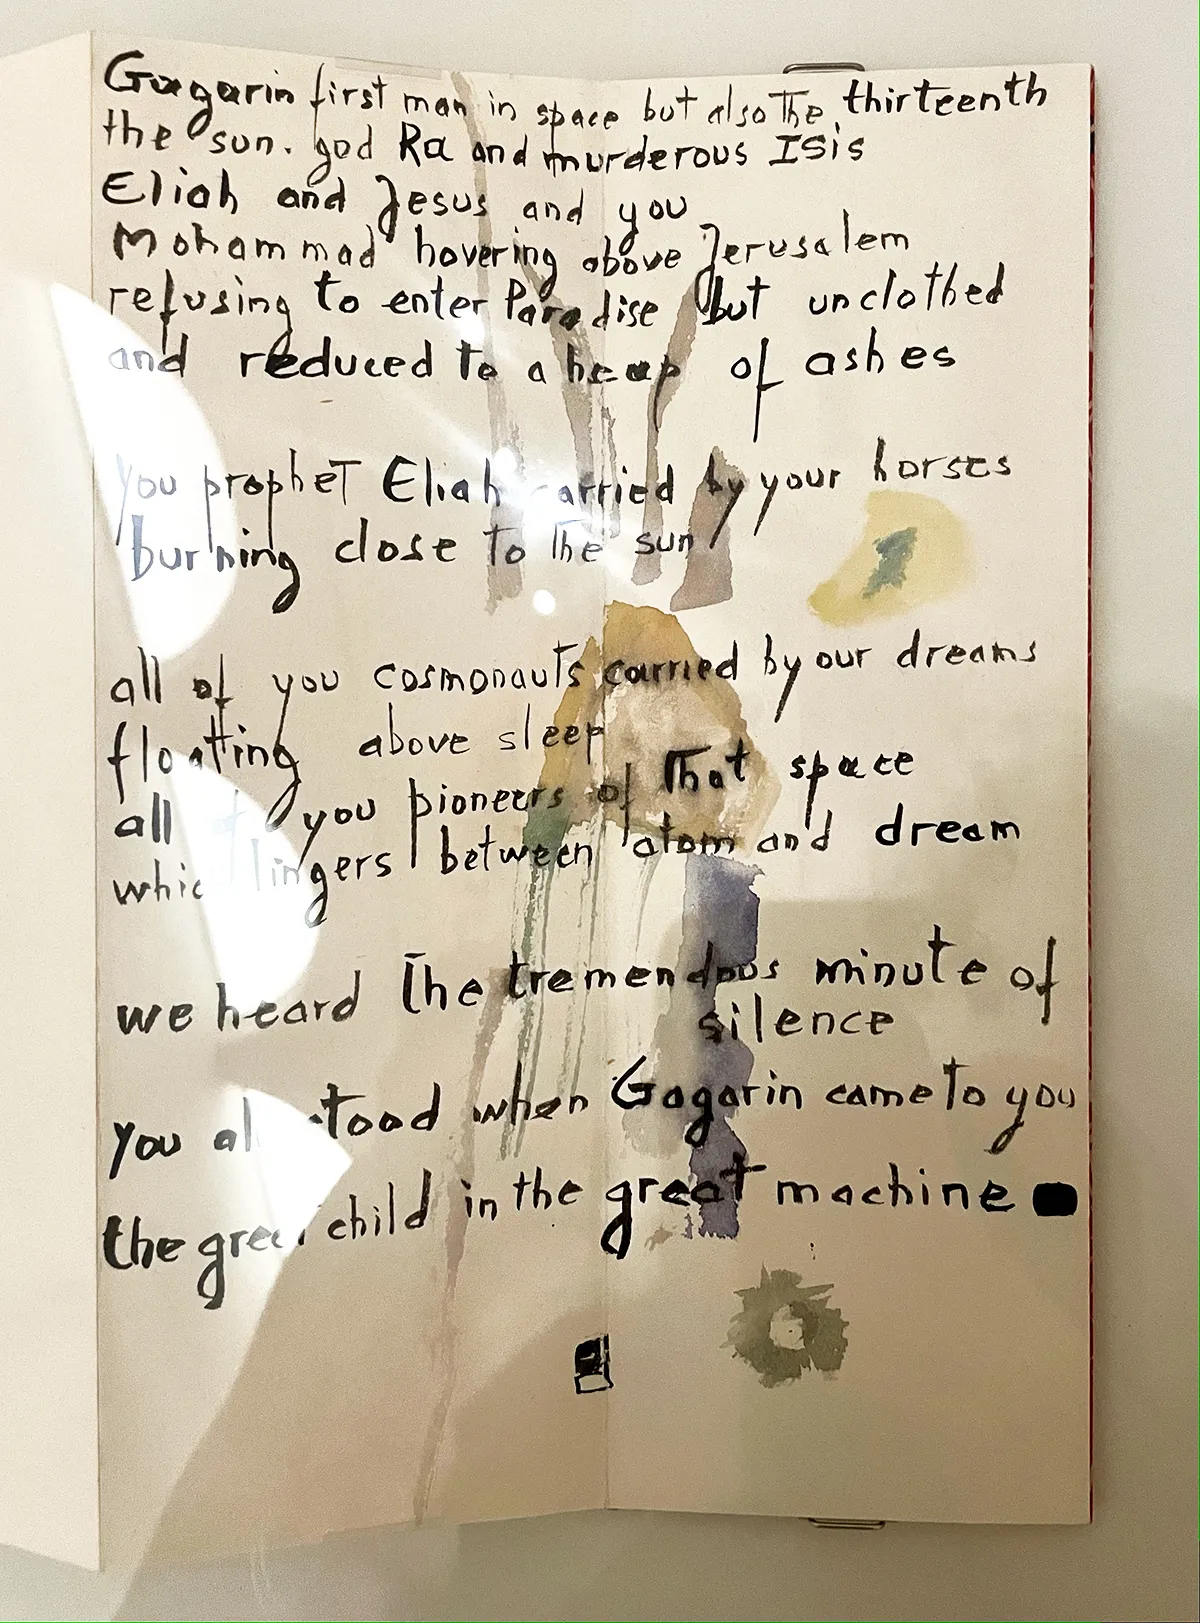 Gagarin first man in space but also the thirteenth
the sun. god Ra and murderous ISis
Eliah and Jesus and you
Mohammad hovering above Jerusalem
refusing to enter Paradise but unclothed
and reduced to a heap of ashes
You prophet Eliah carried by your horses
burning close to the sun
all of you cosmonauts carried by our dreams
floating above sleep
all of you pioneers of that space
which lingers between atom and dream
we heard the tremendous minute of
silence
you all stood when Gagarin came to you
the great child in the great machine